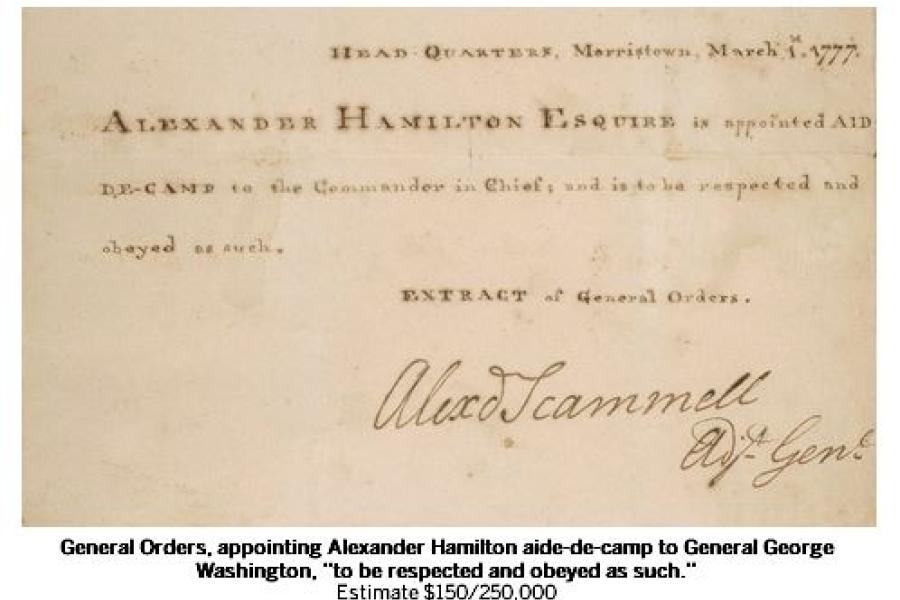 HEAD QUARTERS, Morristown, March 1st. 1777.
ALEXANDER HAMILTON ESQUIRE is appointed AID
DE-CAMP to the Commander in Chief; and is to be respected and
obeyed as such.
EXTRACT of General Orders.
Alexd Scammell
Adjt. Genl.
General Orders, appointing Alexander Hamilton aide-de-camp to General George
Washington, "to be respected and obeyed as such."
Estimate $150/250,000